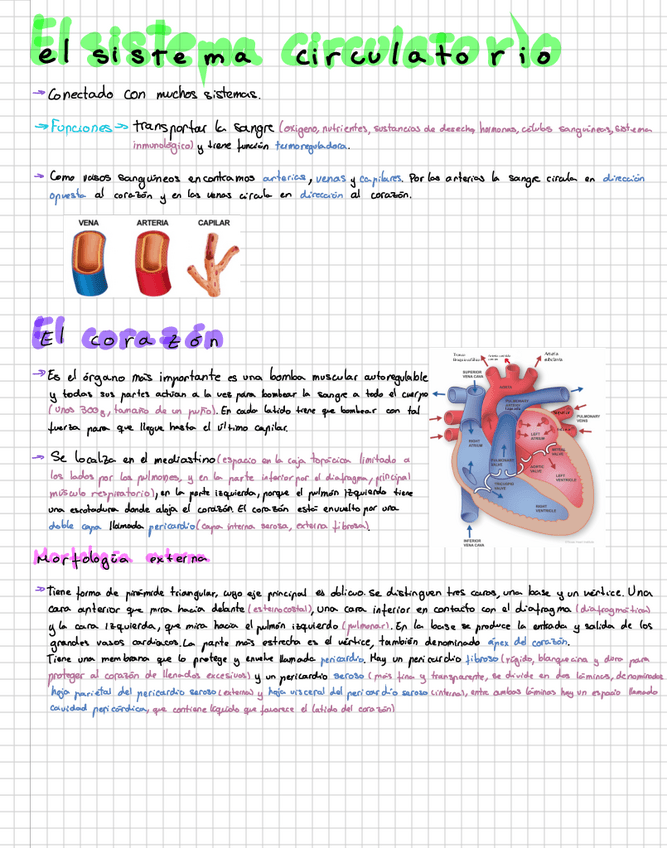 el sistema circulatorio
→ Conectado con muchos sistemas.
→ Funciones → transportar la sangre (oxígeno, nutrientes, sustancias de desecho, hormonas, células sanguíneas, sistema
inmunológico) y tiene función termoreguladora.
→ Como vasos sanguíneos encontramos arterias, venas y capilares. Por las arterias la sangre circula en dirección
opuesta al corazón y en las venas circula en dirección al corazón.
VENA ARTERIA CAPILAR
El corazón
→ Es el órgano más importante es una bomba muscular autoregulable
y todas sus partes actúan a la vez para bombear la sangre a todo el cuerpo
(Unos 300g, tamaño de un puño). En cada latido tiene que bombear con tal
fuerza para que llegue hasta el último capilar.
→ Se localiza en el mediastino (espacio en la caja torácica limitado a
los lados por los pulmones, y en la parte inferior por el diafragma, principal
músculo respiratorio), en la parte izquierda, porque el pulmón izquierdo tiene
una escotadura donde aloja el corazón. El corazón está envuelto por una
doble capa llamada pericardio (capa interna serosa, externa fibrosa).
SUPERIOR
VENA CAVA
AORTA
PULMONARY
PULMONARY
VEINS
LEFT
ATRIUM
RIGHT
ATRIUM
MITRAL
VALVE
PULMONARY
VALVE
AORTIC
VALVE
LEFT
VENTRICLE
TRICUSPID
VALVE
RIGHT
VENTRICLE
INFERIOR
VENA CAVA
Morfología externa
→ Tiene forma de pirámide triangular, cuyo eje principal es oblicuo. Se distinguen tres caras, una base y un vértice. Una
cara anterior que mira hacia delante (esternocostal), una cara inferior en contacto con el diafragma (diafragmática)
y la cara izquierda, que mira hacia el pulmón izquierdo (pulmonar). En la base se produce la entrada y salida de los
grandes vasos cardíacos. La parte más estrecha es el vértice, también denominado ápex del corazón.
Tiene una membrana que lo protege y envuelve llamada pericardio. Hay un pericardio fibroso (rígido, blanquecina y dura para
proteger al corazón de llenados excesivos) y un pericardio seroso (más fina y transparente, se divide en dos láminas, denominadas
hoja parietal del pericardio seroso (externa) y hoja visceral del pericardio seroso (interna), entre ambas láminas hay un espacio llamado
cavidad pericárdica, que contiene líquido que favorece el latido del corazón)